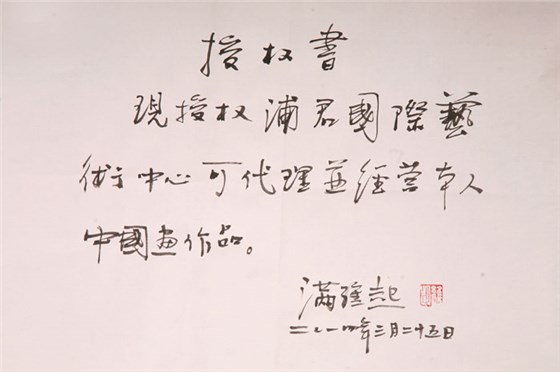 授权書
現授权浦君國際藝
術中心可代理並經营本人
中國畫作品。
满维起
二〇一四年三月二十五日